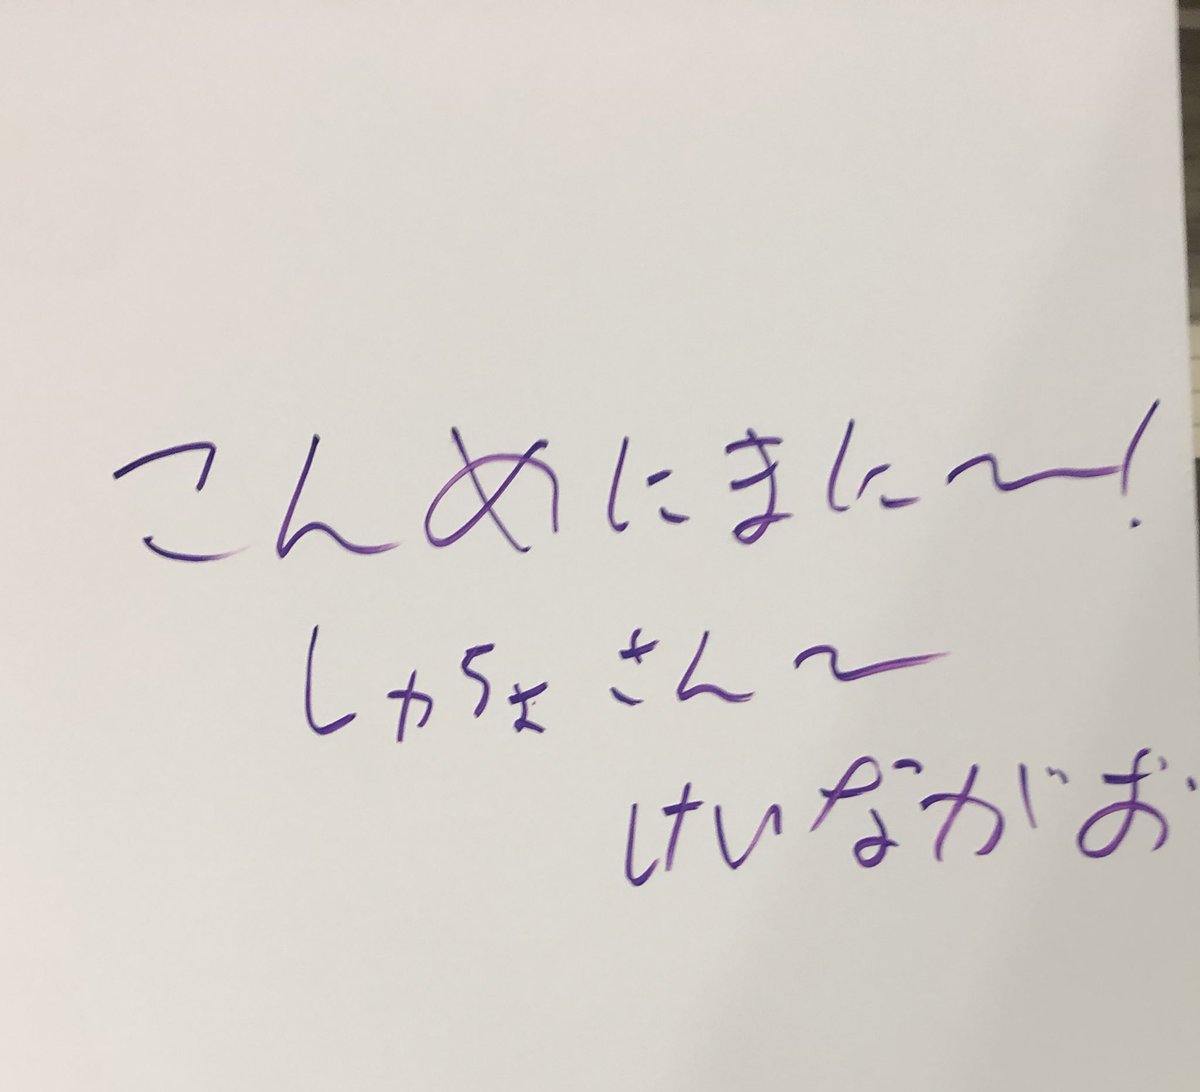 こんめにまに〜!
しゃちょさん〜
けいながお